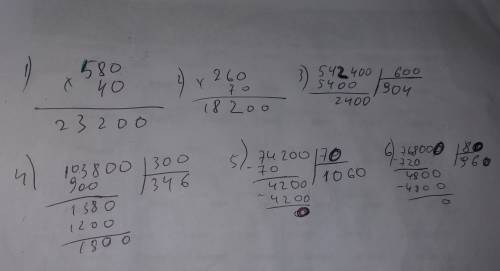 1) 580
x 40
23200
2) x 260
70
18200
3) 542400 | 600
5400 904
2400
4) 103800 | 300
900 346
1380
1200
1800
5) 74200 | 70
-70 1060
4200
-4200
0
6) 768000 | 80
-720 960
4800
-4800
0